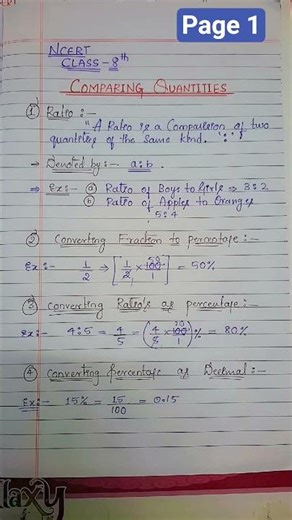 Page 1
NCERT
CLASS - 8th
COMPARING QUANTITIES
① Ratio :-
"A Ratio is a Comparision of two
quantities of the same kind. ':'"
→ Denoted by :- a:b.
⇒ Ex:- ⓐ Ratio of Boys to Girls → 3:2
ⓑ Ratio of Apples to Oranges
5:4
② Converting Fraction to percentage :-
Ex:- 1/2 → [1/2 × 100/1] 50 = 50%
③ Converting Ratio's as percentage :-
Ex:- 4:5 = 4/5 = (4/5 × 100/1) 20 % = 80%
④ Converting Percentage as Decimal :-
Ex:- 15% = 15/100 = 0.15
laxy